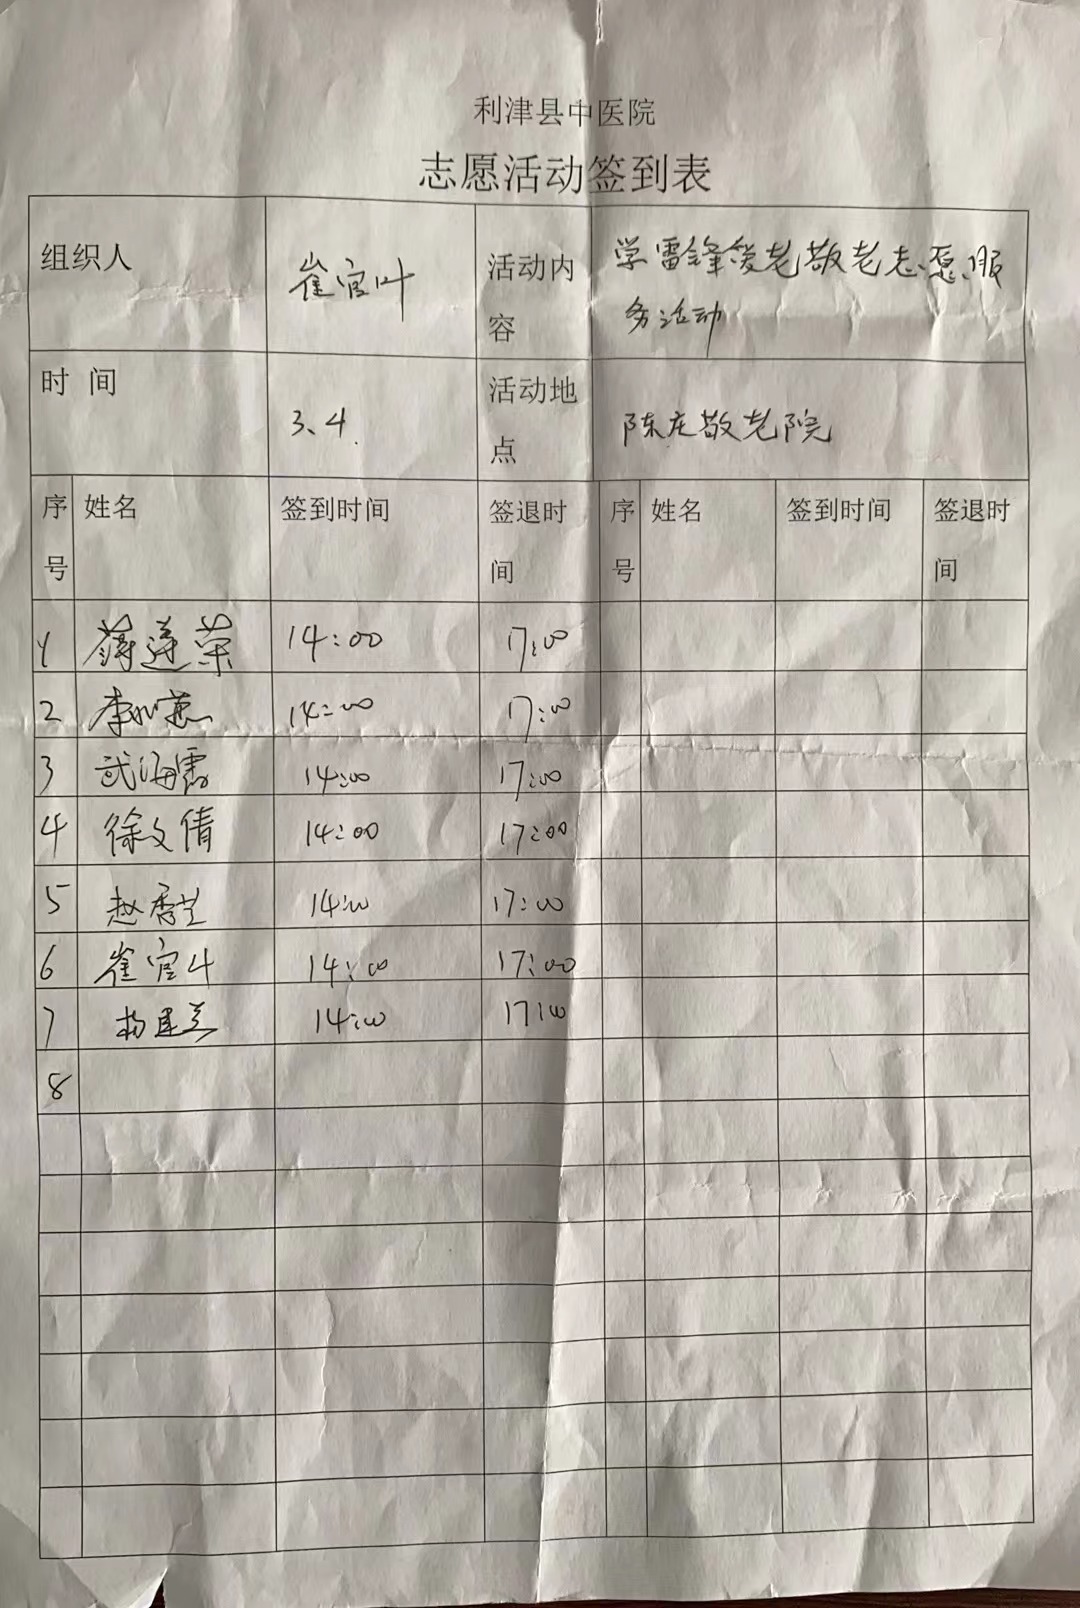 利津县中医院
志愿活动签到表
组织人 崔官叶 活动内容 学雷锋爱老敬老志愿服务活动
时 间 3、4. 活动地点 陈庄敬老院
序号 姓名 签到时间 签退时间 序号 姓名 签到时间 签退时间
1 薛莲荣 14:00 17:00
2 李 14:00 17:00
3 武海霞 14:00 17:00
4 徐文倩 14:00 17:00
5 赵秀兰 14:00 17:00
6 崔官叶 14:00 17:00
7 杨建兰 14:00 17:00
8